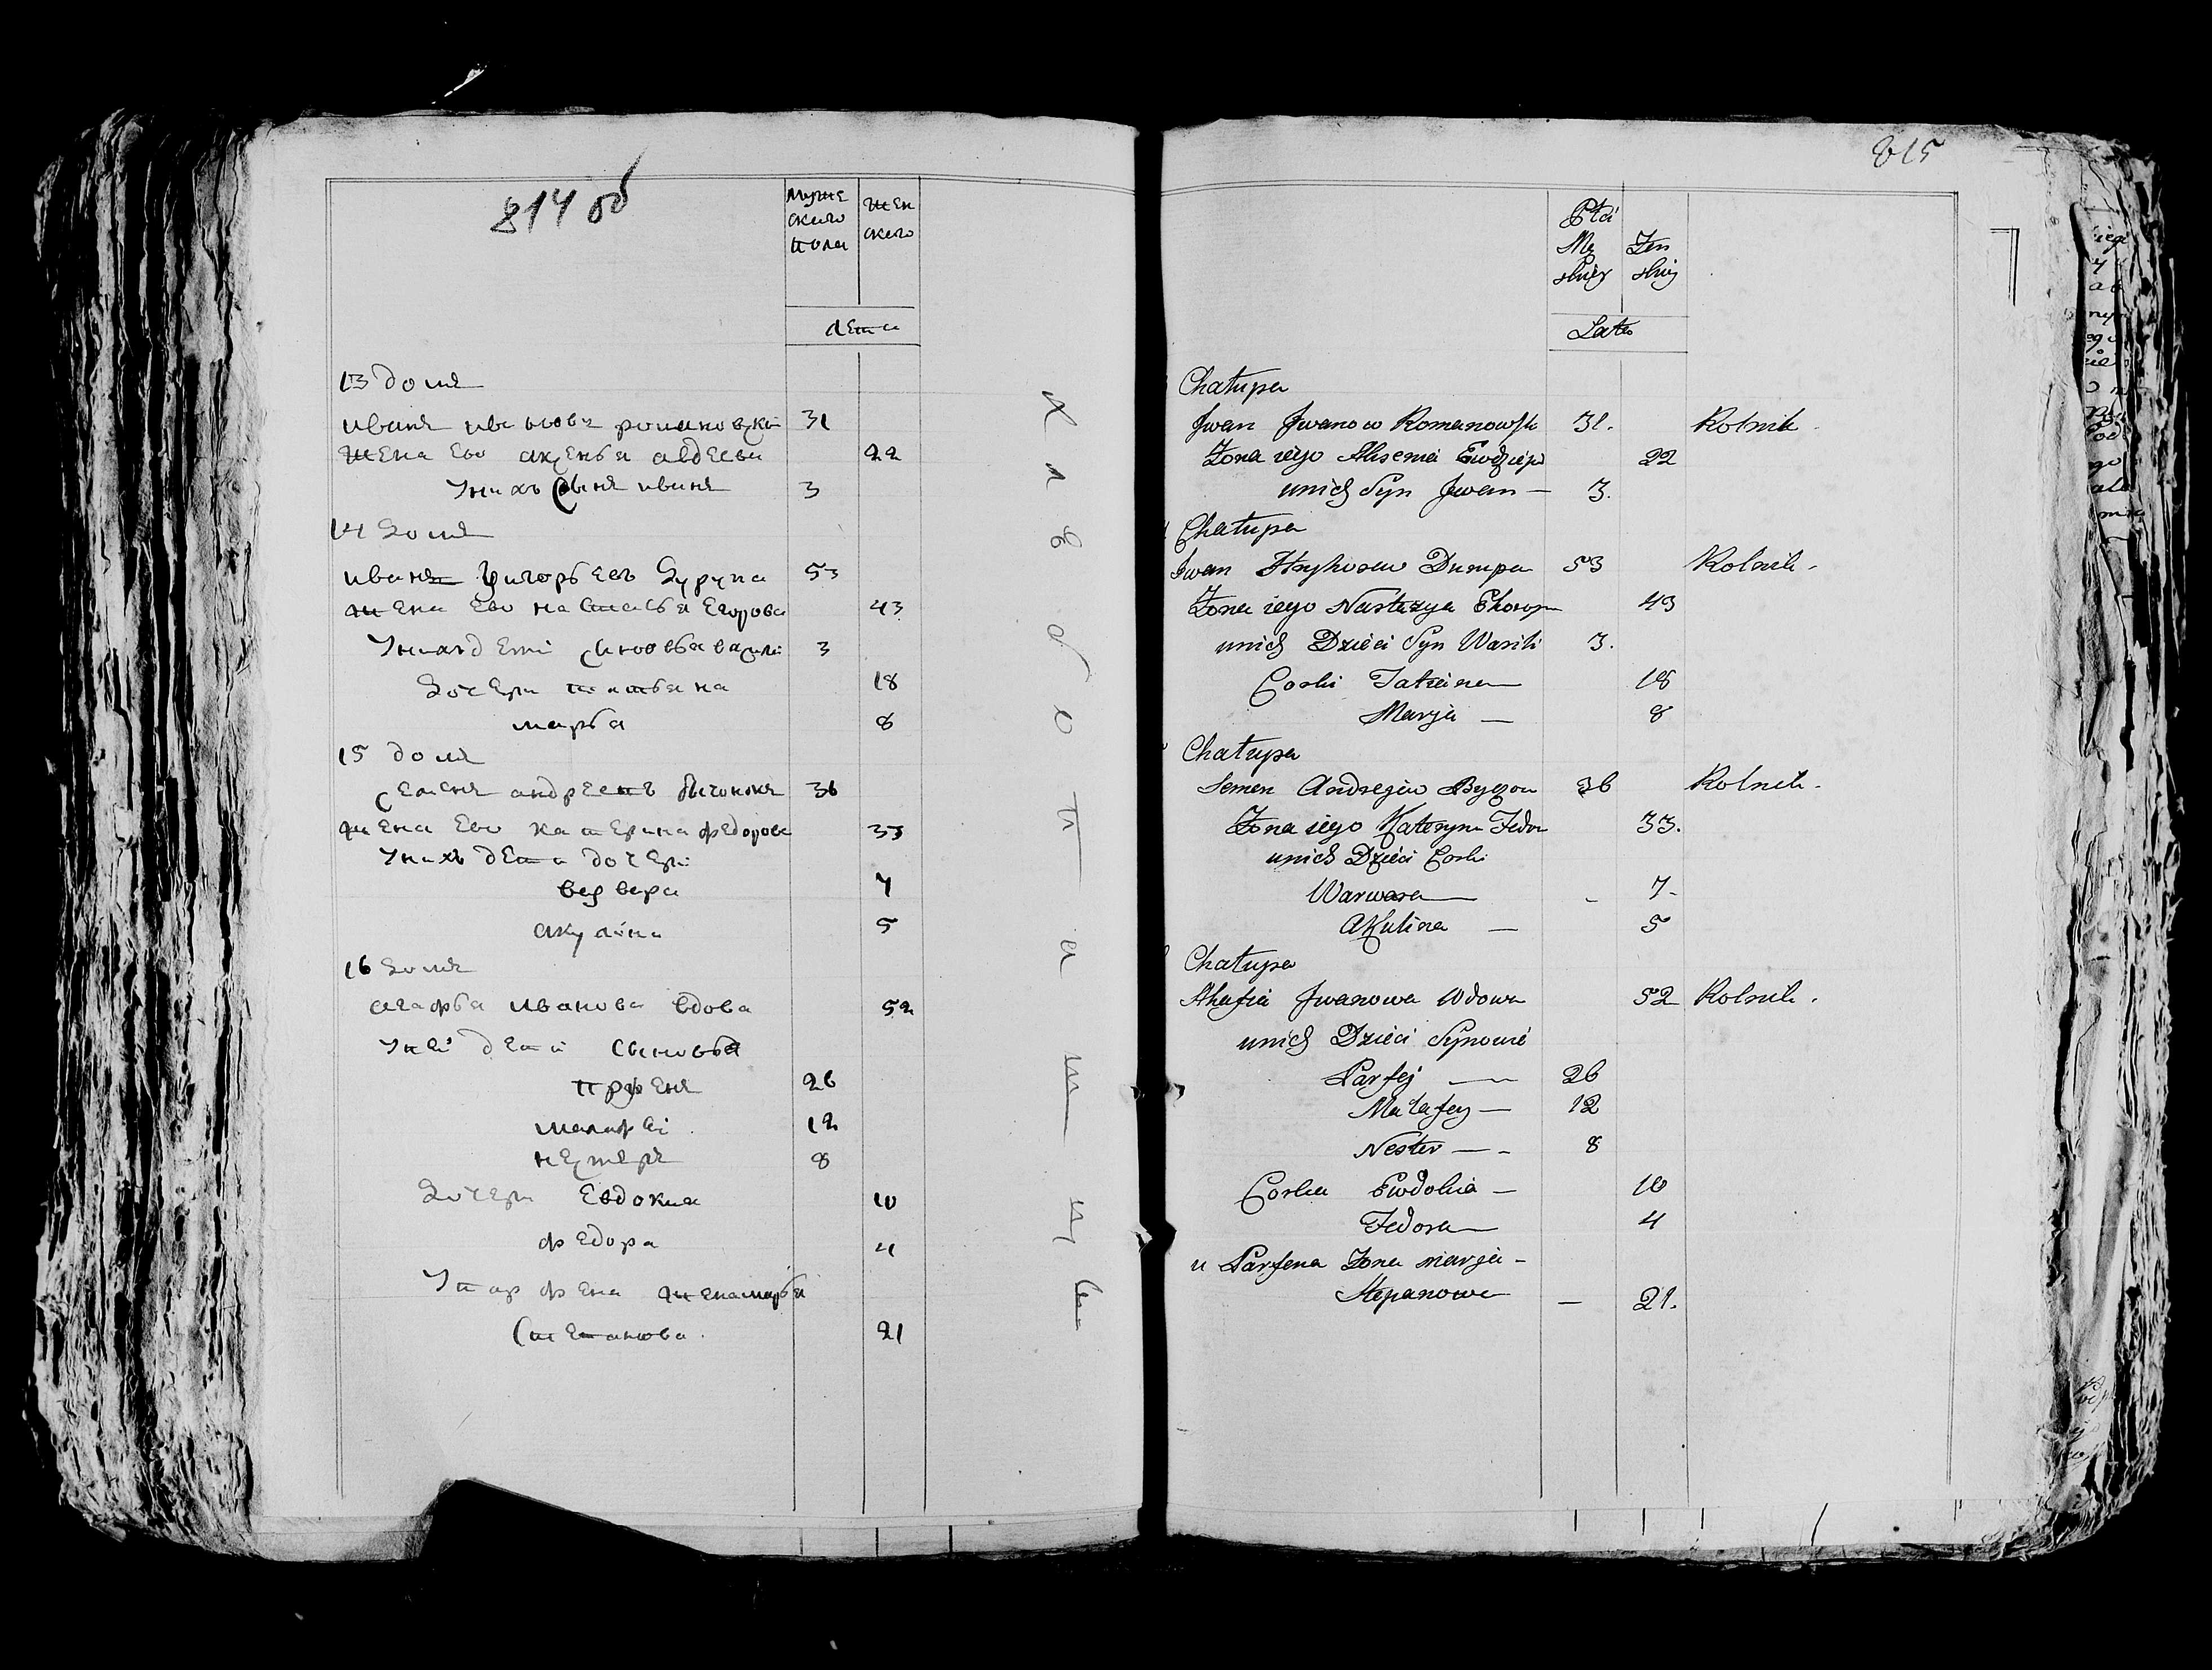 814 об
муже
ского
пола
жен
ского
лета
13 домъ
иванъ ивановъ романовски 31
жена ево аксенья авдеева 22
Унихъ Сынъ иванъ 3
14 домъ
иванъ григорьевъ дурупа 53
жена ево настасья Егорова 43
Унихъ дети сыновья васили 3
дочери татьяна 18
марья 8
15 домъ
семенъ андреевъ 36
жена ево катерина федорова 33
Унихъ дети дочери
варвара 7
акулина 5
16 домъ
агафья иванова вдова 52
Унеи дети Сыновья
прфенъ 26
малафеи 12
нестеръ 8
дочери Евдокия 10
федора 4
Упарфена жена марья
Степанова 21
хлебопашцы
815
Płci
Mę
skiey
Żen
skiey
Lata
Chałupa
Jwan Jwanow Romanowsk 31. Rolnik
Żona iego Aksenia 22
unich Syn Jwan — 3.
Chałupa
Jwan Hryhorew Durupa 53 Rolnik.
Żona iego Nastazya Ehorow 43
unich Dzieci Syn Wasili 3.
Corki Tatiana 18
Marja — 8
Chałupa
Semen Andrejew Byczon 36 Rolnik.
Żona iego Kateryna Fedor 33.
unich Dzieci Corki
Warwara — 7-
Akulina — 5
Chałupa
Ahafia Jwanowa Wdowa 52 Rolnik.
unich Dzieci Synowie
Parfej — 26
Małafey — 12
Nester — 8
Corka Ewdokia — 10
Fedora — 4
u Parfena Żona marja -
Stepanowa — 21.